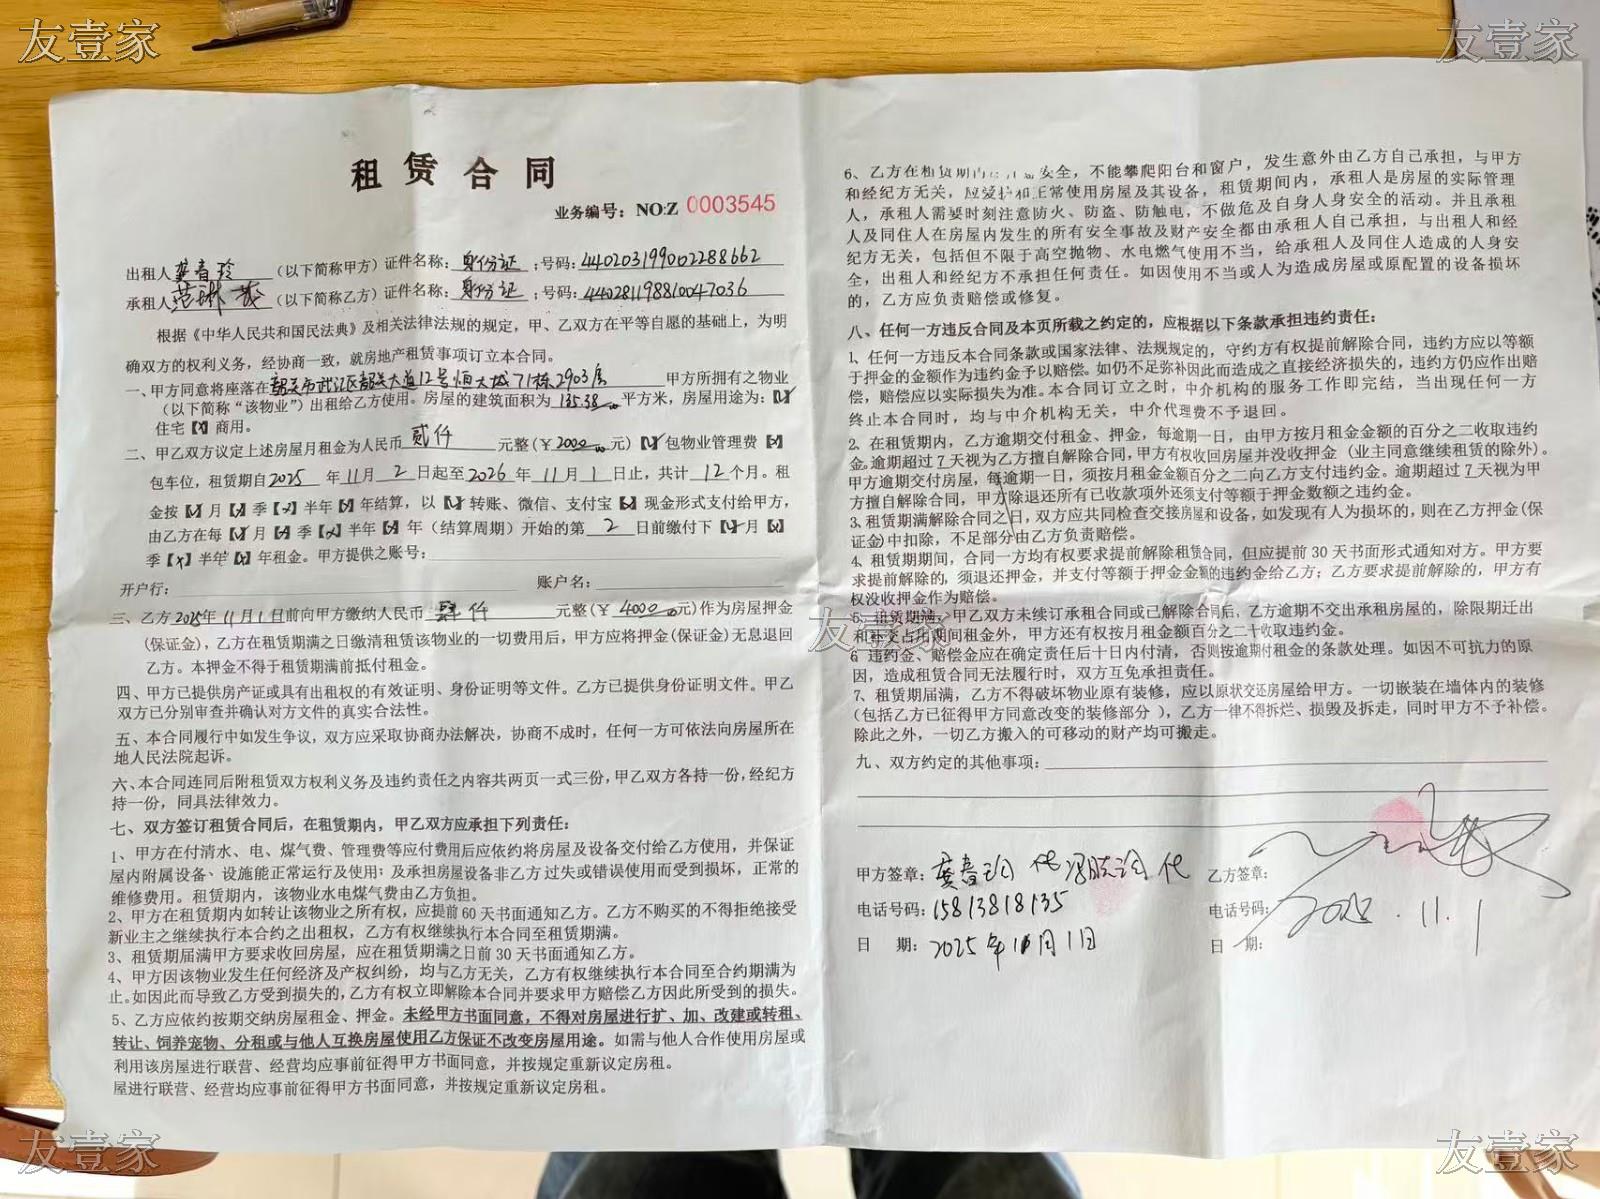 友壹家
友壹家
租赁合同
业务编号：NO:Z 0003545
出租人龚春玲（以下简称甲方）证件名称：身份证；号码：440203199002288662
承租人范琳（以下简称乙方）证件名称：身份证；号码：440281198810047036
根据《中华人民共和国民法典》及相关法律法规的规定，甲、乙双方在平等自愿的基础上，为明
确双方的权利义务，经协商一致，就房地产租赁事项订立本合同。
一、甲方同意将座落在韶关市武江区韶关大道12号恒大城71栋2903房 甲方所拥有之物业
（以下简称“该物业”）出租给乙方使用。房屋的建筑面积为 135.38 平方米，房屋用途为：【√】
住宅【X】商用。
二、甲乙双方议定上述房屋月租金为人民币 贰仟 元整（￥2000.00元）【√】包物业管理费【X】
包车位，租赁期自2025年11月2日起至2026年11月1日止，共计12个月。租
金按【√】月【X】季【X】半年【X】年结算，以【√】转账、微信、支付宝【X】现金形式支付给甲方，
由乙方在每【√】月【X】季【X】半年【X】年（结算周期）开始的第 2 日前缴付下【√】月【X】
季【X】半年【X】年租金。甲方提供之账号：
开户行： 账户名：
三、乙方2025年11月1日前向甲方缴纳人民币 肆仟 元整（￥4000.00元）作为房屋押金
(保证金)，乙方在租赁期满之日缴清租赁该物业的一切费用后，甲方应将押金(保证金)无息退回
乙方。本押金不得于租赁期满前抵付租金。
四、甲方已提供房产证或具有出租权的有效证明、身份证明等文件。乙方已提供身份证明文件。甲乙
双方已分别审查并确认对方文件的真实合法性。
五、本合同履行中如发生争议，双方应采取协商办法解决，协商不成时，任何一方可依法向房屋所在
地人民法院起诉。
六、本合同连同后附租赁双方权利义务及违约责任之内容共两页一式三份，甲乙双方各持一份，经纪方
持一份，同具法律效力。
七、双方签订租赁合同后，在租赁期内，甲乙双方应承担下列责任：
1、甲方在付清水、电、煤气费、管理费等应付费用后应依约将房屋及设备交付给乙方使用，并保证
屋内附属设备、设施能正常运行及使用；及承担房屋设备非乙方过失或错误使用而受到损坏，正常的
维修费用。租赁期内，该物业水电煤气费由乙方负担。
2、甲方在租赁期内如转让该物业之所有权，应提前60天书面通知乙方。乙方不购买的不得拒绝接受
新业主之继续执行本合约之出租权，乙方有权继续执行本合同至租赁期满。
3、租赁期届满甲方要求收回房屋，应在租赁期满之日前30天书面通知乙方。
4、甲方因该物业发生任何经济及产权纠纷，均与乙方无关，乙方有权继续执行本合同至合约期满为
止。如因此而导致乙方受到损失的，乙方有权立即解除本合同并要求甲方赔偿乙方因此所受到的损失。
5、乙方应依约按期交纳房屋租金、押金。未经甲方书面同意，不得对房屋进行扩、加、改建或转租、
转让、饲养宠物、分租或与他人互换房屋使用乙方保证不改变房屋用途。如需与他人合作使用房屋或
利用该房屋进行联营、经营均应事前征得甲方书面同意，并按规定重新议定房租。
屋进行联营、经营均应事前征得甲方书面同意，并按规定重新议定房租。
6、乙方在租赁期内安全，不能攀爬阳台和窗户，发生意外由乙方自己承担，与甲方
和经纪方无关，应爱护和正常使用房屋及其设备，租赁期间内，承租人是房屋的实际管理
人，承租人需要时刻注意防火、防盗、防触电，不做危及自身人身安全的活动。并且承租
人及同住人在房屋内发生的所有安全事故及财产安全都由承租人自己承担，与出租人和经
纪方无关，包括但不限于高空抛物、水电燃气使用不当，给承租人及同住人造成的人身安
全，出租人和经纪方不承担任何责任。如因使用不当或人为造成房屋或原配置的设备损坏
的，乙方应负责赔偿或修复。
八、任何一方违反合同及本页所载之约定的，应根据以下条款承担违约责任：
1、任何一方违反本合同条款或国家法律、法规规定的，守约方有权提前解除合同，违约方应以等额
于押金的金额作为违约金予以赔偿。如仍不足弥补因此而造成之直接经济损失的，违约方仍应作出赔
偿，赔偿应以实际损失为准。本合同订立之时，中介机构的服务工作即完结，当出现任何一方
终止本合同时，均与中介机构无关，中介代理费不予退回。
2、在租赁期内，乙方逾期交付租金、押金，每逾期一日，由甲方按月租金金额的百分之二收取违约
金。逾期超过7天视为乙方擅自解除合同，甲方有权收回房屋并没收押金（业主同意继续租赁的除外）。
甲方逾期交付房屋，每逾期一日，须按月租金金额百分之二向乙方支付违约金。逾期超过7天视为甲
方擅自解除合同，甲方除退还所有已收款项外还须支付等额于押金数额之违约金。
3、租赁期满解除合同之日，双方应共同检查交接房屋和设备，如发现有人为损坏的，则在乙方押金(保
证金)中扣除，不足部分由乙方负责赔偿。
4、租赁期期间，合同一方均有权要求提前解除租赁合同，但应提前30天书面形式通知对方。甲方要
求提前解除的，须退还押金，并支付等额于押金金额的违约金给乙方；乙方要求提前解除的，甲方有
权没收押金作为赔偿。
5、租赁期满，甲乙双方未续订承租合同或已解除合同后，乙方逾期不交出承租房屋的，除限期迁出
和补交占用期间租金外，甲方还有权按月租金额百分之二十收取违约金。
6 违约金、赔偿金应在确定责任后十日内付清，否则按逾期付租金的条款处理。如因不可抗力的原
因，造成租赁合同无法履行时，双方互免承担责任。
7、租赁期届满，乙方不得破坏物业原有装修，应以原状交还房屋给甲方。一切嵌装在墙体内的装修
（包括乙方已征得甲方同意改变的装修部分），乙方一律不得拆烂、损毁及拆走，同时甲方不予补偿。
除此之外，一切乙方搬入的可移动的财产均可搬走。
九、双方约定的其他事项：
甲方签章： 代 代
电话号码：15813818135
日 期：2025年11月1日
乙方签章：
电话号码：
日 期： 2025.11.1
友壹家
友壹家
友壹家